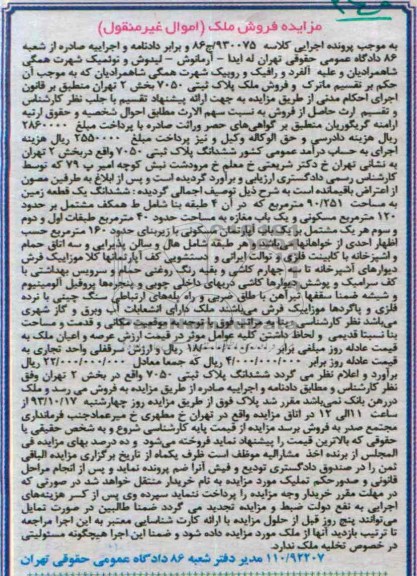 مزایده فروش ملک (اموال غیرمنقول)
به موجب پرونده اجرایی کلاسه ۹۳۰۰۷۵/ج۸۶ و برابر دادنامه و اجراییه صادره از شعبه
۸۶ دادگاه عمومی حقوقی تهران له ایدا - آرمانوش - لیدوش و نوئمیک شهرت همگی
شاهمرادیان و علیه آلفرد و رافیک و روبیک شهرت همگی شاهمرادیان که به موجب آن
حکم بر تقسیم ماترک و فروش ملک پلاک ثبتی ۷۰۵۰ بخش ۲ تهران منطبق بر قانون
اجرای احکام مدنی از طریق مزایده به جهت ارائه پیشنهاد تقسیم با جلب نظر کارشناس
و تقسیم ارث حاصل از فروش به نسبت سهم الارث مطابق احوال شخصیه و حقوق ارثیه
ارامنه گریگوریان منطبق بر گواهی‌های حصر وراثت صادره با پرداخت مبلغ ۲۸۶۰۰۰۰
ریال هزینه دادرسی و حق الوکاله وکیل و نیز پرداخت مبلغ ۲۵۵۰۰۰۰ ریال هزینه
اجرای به حساب درآمد عمومی کشور ششدانگ پلاک ثبتی ۷۰۵۰ واقع دربخش ۲ تهران
به نشانی تهران خ دکتر شریعتی خ معلم خ مرودشت نبش کوچه امیر پ ۷۹ که توسط
کارشناس رسمی دادگستری ارزیابی و برآورد گردیده است و پس از ابلاغ به طرفین مصون
از اعتراض باقیمانده است به شرح ذیل توصیف اجمالی گردیده : ششدانگ یک قطعه زمین
به مساحت ۹۰/۲۵۱ مترمربع که در آن ۴ طبقه بنا شامل ط همکف مشتمل بر حدود
۱۲۰ مترمربع مسکونی و یک باب مغازه به مساحت حدود ۴۰ مترمربع طبقات اول و دوم
و سوم هر یک مشتمل بر یک باب آپارتمان مسکونی با زیربنای حدود ۱۶۰ مترمربع حسب
اظهار احدی از خواهانها میباشند. هر طبقه شامل هال و سالن پذیرایی و سه اتاق حمام
و آشپزخانه با کابینت فلزی و توالت ایرانی و دستشویی کف آپارتمانها کلا موزاییک فرش
دیوارهای آشپزخانه تا سه چهارم کاشی و بقیه رنگ روغنی حمام و سرویس بهداشتی با
کف سرامیک و پوشش دیوارها کاشی دربهای داخلی چوبی و پنجره‌ها پروفیل آلومینیوم
و شیشه ضمنا سقفها تیرآهن با طاق ضربی و راه پله‌های ارتباطی سنگ چینی با نرده
فلزی و پاگردها موزاییک فرش می‌باشند ملک دارای انشعابات آب وبرق و گاز شهری
می‌باشد نظر کارشناسی با عنایت به مراتب فوق با توجه به موقعیت مکانی و قدمت و مساحت
بنا نسبتا قدیمی و لحاظ داشتن کلیه عوامل موثر در قیمت ارزش عرصه و اعیان ملک به
قیمت عادله روز مبلغی برابر ۱۸/۰۰۰/۰۰۰/۰۰۰ ریال و ارزش سرقفلی واحد تجاری به
قیمت عادله روز برابر ۴/۰۰۰/۰۰۰/۰۰۰ ریال که جمعا معادل ۲۲/۰۰۰/۰۰۰/۰۰۰ ریال
برآورد و اعلام نظر می گردد ششدانگ پلاک ثبتی ۷۰۵۰ واقع در بخش ۲ تهران وفق
نظر کارشناس و مطابق دادنامه و اجراییه صادره از طریق مزایده به فروش می رسد و ملک
دررهن بانک نمی‌باشد مقرر شد پلاک فوق از طریق مزایده روز چهارشنبه ۹۳/۱۰/۱۷ از
ساعت ۱۱الی ۱۲ در اتاق مزایده واقع در تهران خ مطهری خ میرعمادجنب فرمانداری
مجتمع صدر به فروش برسد مزایده از قیمت پایه کارشناسی شروع و به شخص حقیقی یا
حقوقی که بالاترین قیمت را پیشنهاد نماید فروخته می‌شود و ده درصد بهای مزایده فی
المجلس از برنده اخذ مشارالیه موظف است ظرف یکماه از تاریخ برگزاری مزایده الباقی
ثمن را در صندوق دادگستری تودیع و فیش آنرا ضم پرونده نماید و پس از انجام مراحل
قانونی و صدورحکم تملیک مورد مزایده به نام خریدار منتقل خواهد شد در صورتی که
در مهلت مقرر خریدار وجه مزایده را پرداخت ننماید سپرده وی پس از کسر هزینه‌های
اجرایی به نفع دولت ضبط و مزایده تجدید می گردد ضمنا طالبین در صورت تمایل
می‌توانند پنج روز قبل از حلول مزایده با ارائه کارت شناسایی معتبر به این اجرا مراجعه
تا ترتیب بازدید آنها از ملک مورد مزایده داده شود و ضمنا این اجرا هیچگونه مسئولیتی
در خصوص تخلیه ملک ندارد.
۱۱۰/۹۲۲۰۷ مدیر دفتر شعبه ۸۶ دادگاه عمومی حقوقی تهران